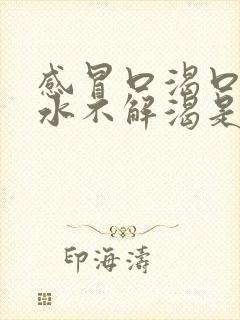 感冒口渴口
水不解渴是
印海涛